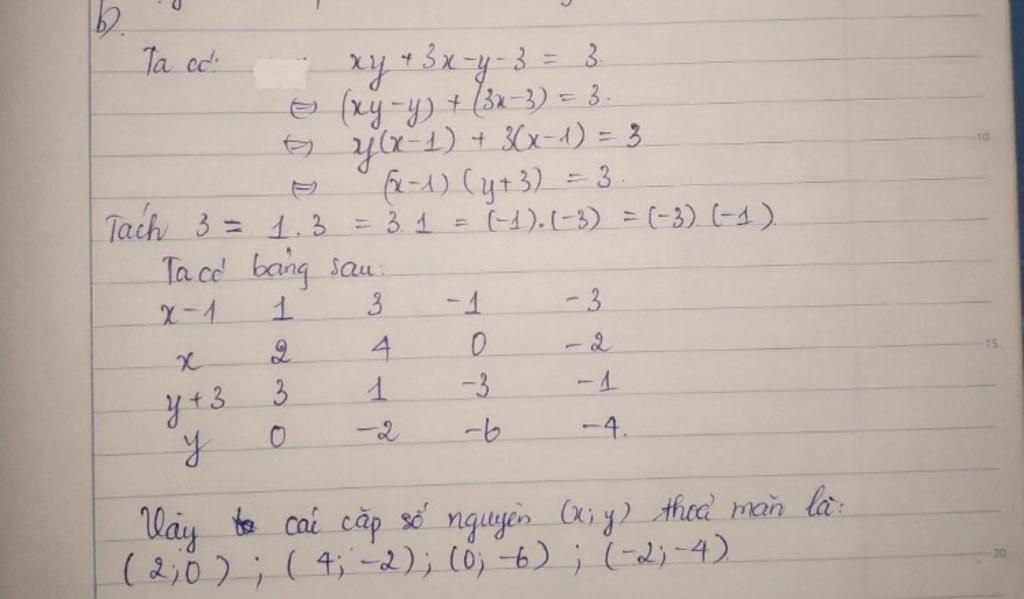 b).
Ta có: xy + 3x - y - 3 = 3.
⇔ (xy - y) + (3x - 3) = 3.
⇔ y(x - 1) + 3(x - 1) = 3
⇔ (x - 1) (y + 3) = 3.
Tách 3 = 1 . 3 = 3.1 = (-1).(-3) = (-3).(-1).
Ta có bảng sau:
x - 1 1 3 -1 -3
x 2 4 0 -2
y + 3 3 1 -3 -1
y 0 -2 -6 -4.
Vậy các cặp số nguyên (x; y) thoả mãn là:
(2; 0) ; (4; -2); (0; -6) ; (-2; -4).
10
15
20